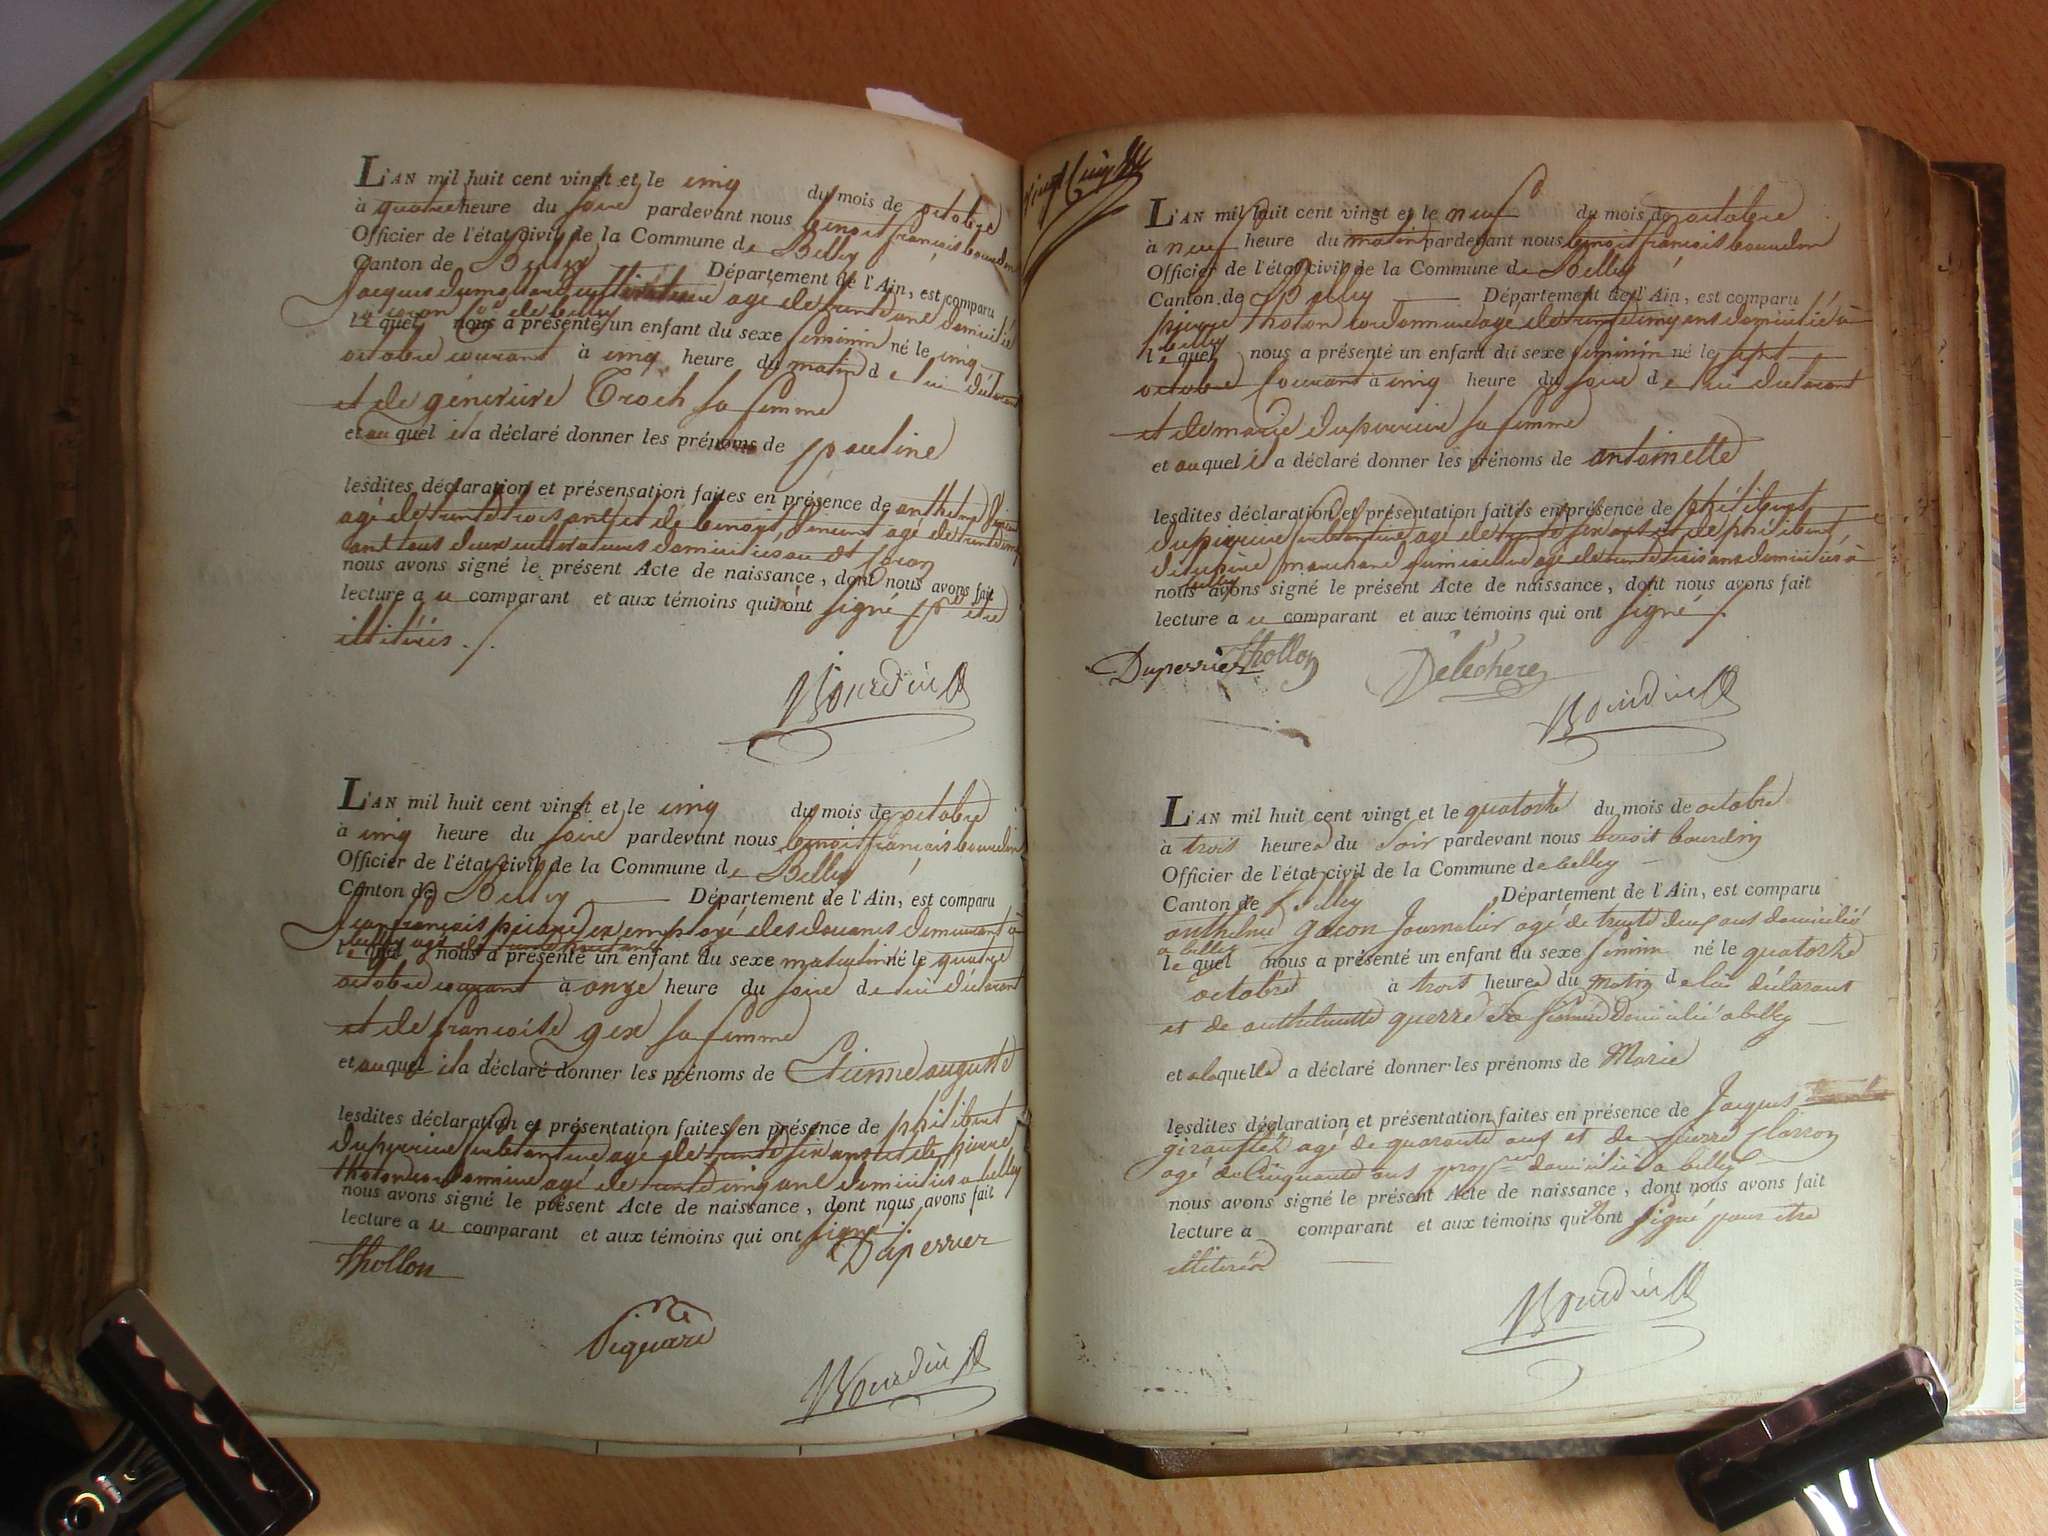 L'AN mil huit cent vingt et le cinq du mois de octobre
à quatre heure du soir pardevant nous benoit françois bourdin
Officier de l'état civil de la Commune de Belley
Canton de Belley Département de l'Ain, est comparu
Jacques cultivateur agé de trente ans domicilié
le quel nous a présenté un enfant du sexe feminin né le cinq
octobre courant à cinq heure du matin de lui déclarant
et de génevieve Troch sa femme
et au quel il a déclaré donner les prénoms de pauline
lesdites déclaration et présensation faites en présence de anthelme
agé de trente trois ans et de benoit agé de trente cinq
ans tous deux cultivateurs domiciliés au dt
nous avons signé le présent Acte de naissance, dont nous avons fait
lecture a ce comparant et aux témoins qui n'ont signé pr etre
illitérés ./.
Bourdin
L'AN mil huit cent vingt et le cinq du mois de octobre
à cinq heure du soir pardevant nous benoit françois bourdin
Officier de l'état civil de la Commune de Belley
Canton de Belley Département de l'Ain, est comparu
Jean françois ex employé des douanes demeurant à
belley agé de trente huit ans
le quel nous a présenté un enfant du sexe masculin né le quatre
octobre courant à onze heure du soir de lui déclarant
et de françoise gex sa femme
et au quel il a déclaré donner les prénoms de Etienne auguste
lesdites déclaration et présentation faites en présence de philibert
duperrier agé de trente six ans et de pierre
tholon cordonnier agé de trente cinq ans domiciliés a belley
nous avons signé le présent Acte de naissance, dont nous avons fait
lecture a ce comparant et aux témoins qui ont signé ./.
Thollon Duperrier
Bourdin
L'AN mil huit cent vingt et le neuf du mois de octobre
à neuf heure du matin pardevant nous benoit françois bourdin
Officier de l'état civil de la Commune de Belley
Canton de Belley Département de l'Ain, est comparu
pierre tholon cordonnier agé de trente cinq ans domicilié à
belley
le quel nous a présenté un enfant du sexe feminin né le sept
octobre courant à cinq heure du soir de lui déclarant
et de marie duperrier sa femme
et au quel il a déclaré donner les prénoms de antoinette
lesdites déclaration et présentation faites en présence de philibert
duperrier agé de trente six ans et de philibert
marchand agé de trente trois ans domiciliés à
belley
nous avons signé le présent Acte de naissance, dont nous avons fait
lecture a ce comparant et aux témoins qui ont signé ./.
Duperrier Thollon Deléchère
Bourdin
L'AN mil huit cent vingt et le quatorze du mois de octobre
à trois heures du soir pardevant nous benoit bourdin
Officier de l'état civil de la Commune de belley
Canton de Belley Département de l'Ain, est comparu
anthelme gacon Journalier agé de trente deux ans domicilié
a belley
le quel nous a présenté un enfant du sexe féminin né le quatorze
octobre à trois heures du matin de lui déclarant
et de anthelmette guerre sa femme domicilié a belley
et a laquelle a déclaré donner les prénoms de Marie
lesdites déclaration et présentation faites en présence de Jacques
agé de quarante ans et de pierre
agé de Cinquante ans domiciliés a belley
nous avons signé le présent Acte de naissance, dont nous avons fait
lecture a comparant et aux témoins qui n'ont signé pour etre
illiterés
Bourdin